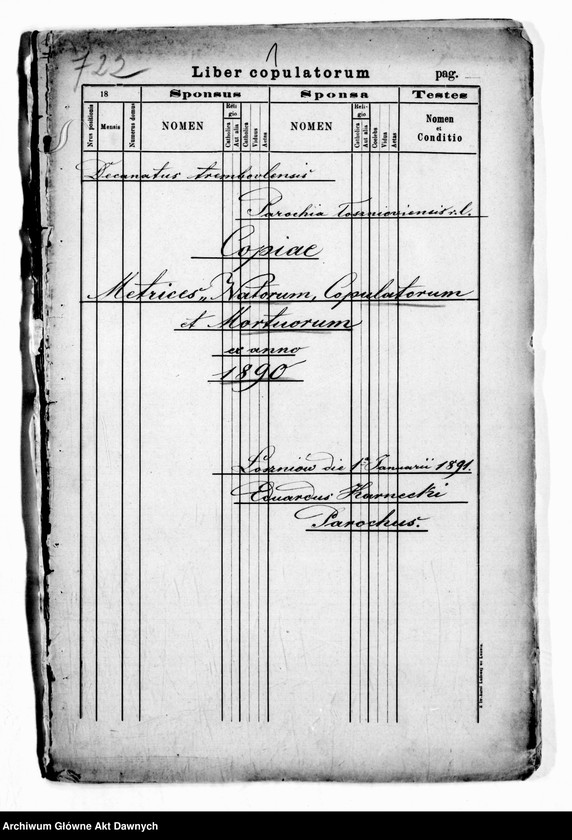 722
1
Liber copulatorum pag.
18 Sponsus Sponsa Testes
Nrus positionis Mensis Numerus domus NOMEN Religio Catholica Aut alia Catholica Viduus Aetas NOMEN Religio Catholica Aut alia Coelebs Vidua Aetas Nomen et Conditio
Decanatus trembovlensis
Parochia Łosznioviensis r. l.
Copiae
Metrices „ Natorum, Copulatorum
et Mortuorum
ex anno
1890
Łoszniow die 1ª Januarii 1891.
Eduardus Karnecki
Parochus.
Archiwum Główne Akt Dawnych